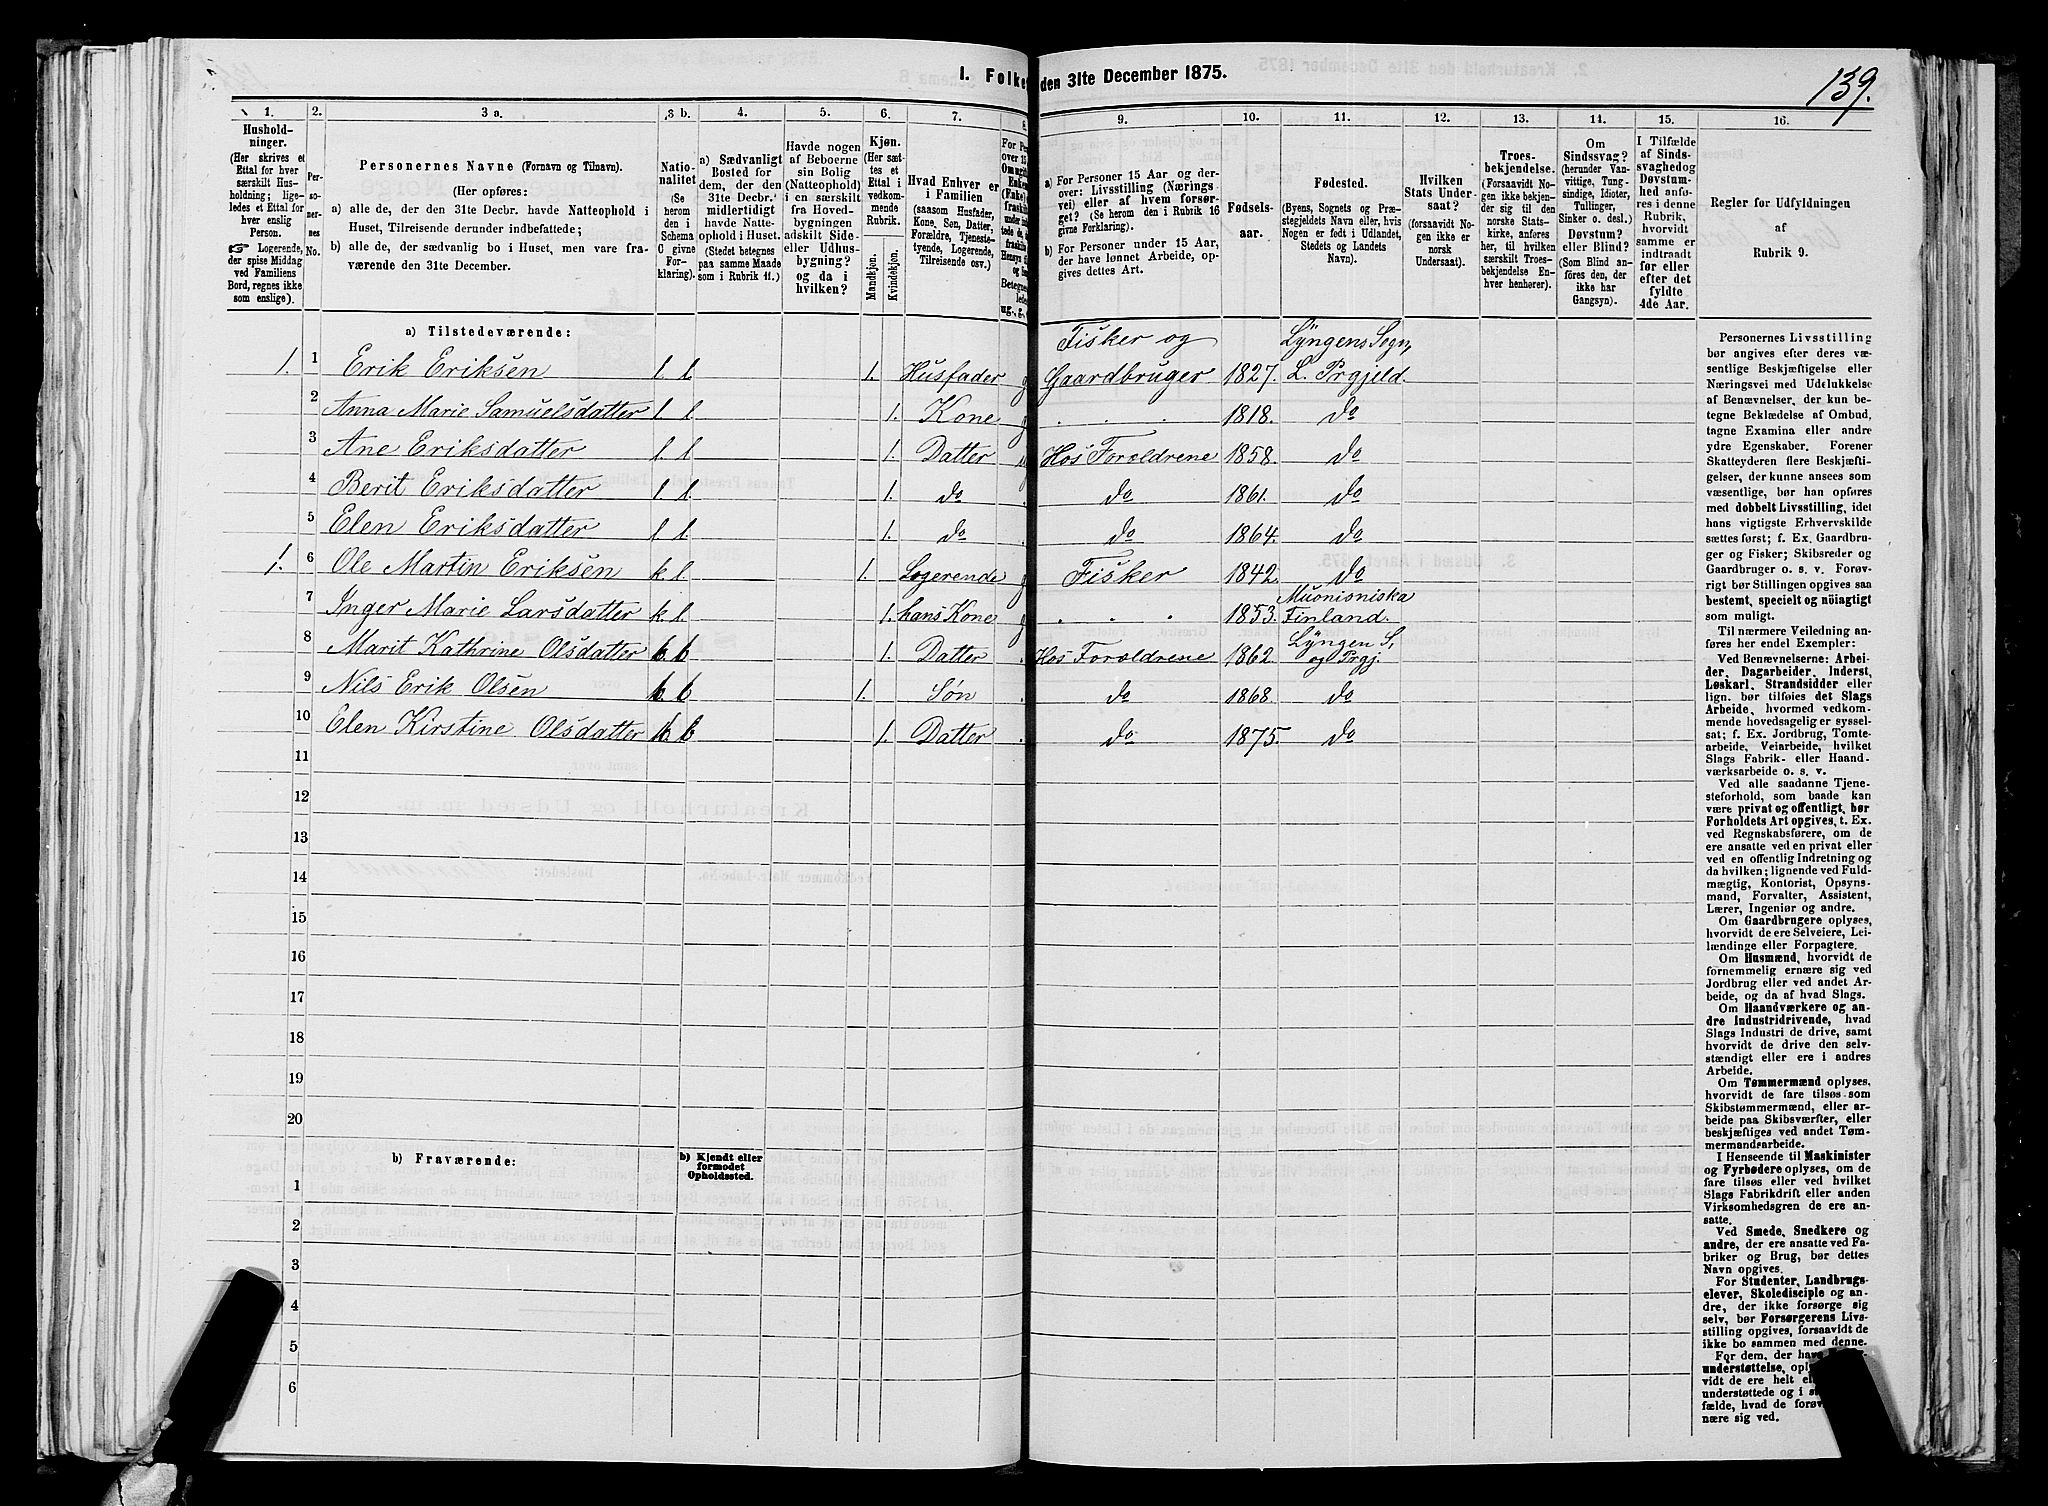 139.
I. Folke den 31te December 1875.
1. 2. 3 a. 3 b. 4. 5. 6. 7. 8. 9. 10. 11. 12. 13. 14. 15. 16.
Hushold-
ninger.
(Her skrives et
Ettal for hver
særskilt Hus-
holdning; lige-
ledes et Ettal for
hver enslig
Person.
☞ Logerende,
der spise Middag
ved Familiens
Bord, regnes ikke
som enslige).
Personernes No.
Personernes Navne (Fornavn og Tilnavn).
(Her opføres:
a) alle de, der den 31te Decbr. havde Natteophold i
Huset, Tilreisende derunder indbefattede;
b) alle de, der sædvanlig bo i Huset, men vare fra-
værende den 31te December.
Natio-
nalitet
(Se
herom
den i
Schema
C givne
For-
klaring).
a) Sædvanligt
Bosted for
dem, der den
31te Decbr.
midlertidigt
havde Natte-
ophold i Huset.
(Stedet betegnes
paa samme Maade
som i Rubrik 11.)
Havde nogen
af Beboerne
sin Bolig
(Natteophold)
i en særskilt
fra Hoved-
bygningen
adskilt Side-
eller Udhus-
bygning?
og da i
hvilken?
Kjøn.
(Her sæt-
tes et
Ettal i
vedkom-
mende
Rubrik.
Mandkjøn.
Kvindekjøn.
Hvad Enhver er
i Familien
(saasom Husfader,
Kone, Søn, Datter,
Forældre, Tjeneste-
tyende, Logerende,
Tilreisende osv.)
a) For Personer 15 Aar og der-
over: Livsstilling (Nærings
vei) eller af hvem forsør-
get? (Se herom den i Rubrik 16
givne Forklaring).
b) For Personer under 15 Aar,
der have lønnet Arbeide, op-
gives dettes Art.
Fødsels-
aar.
Fødested.
(Byens, Sognets og Præ-
stegjeldets Navn eller, hvis
Nogen er født i Udlandet,
Stedets og Landets
Navn).
Hvilken
Stats Under-
saat?
(forsaavidt No-
gen ikke er
norsk
Undersaat).
Troes-
bekjendelse.
(Forsaavidt No-
gen ikke bekjen-
der sig til den
norske Stats-
kirke, anføres
her, til hvilken
særskilt Troes-
bekjendelse En-
hver henhører).
Om
Sindssvag?
(herunder Van-
vittige, Tung-
sindige, Idioter,
Tullinger,
Sinker o. desl.)
Døvstum?
eller Blind?
(Som Blind an-
føres den, der
ikke har
Gangsyn).
I Tilfælde
af Sinds-
svaghed og
Døvstum-
hed anfø-
res i denne
Rubrik,
hvorvidt
samme er
indtraadt
før eller
efter det
fyldte
4de Aar.
Regler for Udfyldningen
af
Rubrik 9.
a) Tilstedeværende:
1. 1 Erik Eriksen l. l. 1. Husfader g Fisker og Gaardbruger 1827. Lyngens Sogn, L. Prgjeld.
2 Anna Marie Samuelsdatter l. l. 1. Kone g 1818. do
3 Ane Eriksdatter l. l. 1. Datter Hos Forældrene 1858. do
4 Berit Eriksdatter l. l. 1. do do 1861. do
5 Elen Eriksdatter l. l. 1. do do 1864. do
1. 6 Ole Martin Eriksen k. l. 1. Logerende g Fisker 1842. do
7 Inger Marie Larsdatter k. l. 1. hans Kone g 1853. Muonioniska Finland.
8 Marit Kathrine Olsdatter b. b 1. Datter Hos Forældrene 1862. Lyngen S, og Prgj.
9 Nils Erik Olsen b. b 1. Søn do 1868. do
10 Elen Kirstine Olsdatter b. b 1. Datter do 1875. do
11
12
13
14
15
16
17
18
19
20
b) Fraværende:
b) Kjendt eller
formodet
Opholdssted.
1
2
3
4
5
6
Personernes Livsstilling
bør angives efter deres væ-
sentlige Beskjæftigelse eller
Næringsvei med Udelukkelse
af Benævnelser, der kun be-
tegne Beklædelse af Ombud,
tagne Examina eller andre
ydre Egenskaber. Forener
Skatteyderen flere Beskjæfti-
gelser, der kunne ansees som
væsentlige, bør han opføres
med dobbelt Livsstilling, idet
hans vigtigste Erhvervskilde
sættes først; f. Ex. Gaardbru-
ger og Fisker; Skibsreder og
Gaardbruger o. s. v. Forøv-
rigt bør Stillingen opgives saa
bestemt, specielt og nøiagtigt
som muligt.
Til nærmere Veiledning an-
føres her endel Exempler:
Ved Benævnelserne: Arbei-
der, Dagarbeider, Inderst,
Løskarl, Strandsidder eller
lign. bør tilføies det Slags
Arbeide, hvormed vedkom-
mende hovedsagelig er syssel-
sat; f. Ex. Jordbrug, Tomte-
arbeide, Veiarbeide, hvilket
Slags Fabrik- eller Haand-
værksarbeide o. s. v.
Ved alle saadanne Tjene-
steforhold, som baade kan
være privat og offentligt, bør
Forholdets Art opgives, t. Ex.
ved Regnskabsførere, om de
ere ansatte ved en privat eller
ved en offentlig Indretning og
da hvilken; lignende ved Fuld-
mægtig, Kontorist, Opsyns-
mand, Forvalter, Assistent,
Lærer, Ingeniør og andre.
Om Gaardbrugere oplyses,
hvorvidt de ere Selveiere, Lei-
lændinge eller Forpagtere.
Om Husmænd, hvorvidt de
fornemmelig ernære sig ved
Jordbrug eller ved andet Ar-
beide, og da af hvad Slags.
Om Haandværkere og an-
dre Industridrivende, hvad
Slags Industri de drive, samt
hvorvidt de drive den selv-
stændigt eller ere i andres
Arbeide.
Om Tømmermænd oplyses,
hvorvidt de fare tilsøs som
Skibstømmermænd, eller ar-
beide paa Skibsværfter, eller
beskjæftiges ved andet Tøm-
mermandsarbeide.
I Henseende til Maskinister
og Fyrbødere oplyses, om de
fare tilsøs eller ved hvilket
Slags Fabrikdrift eller anden
Virksomhedsgren de ere an-
satte.
Ved Smede, Snedkere og
andre, der ere ansatte ved Fa-
briker og Brug, bør dettes
Navn opgives.
For Studenter, Landbrugs-
elever, Skoledisciple og an-
dre, der ikke forsørge sig
selv, bør Forsørgerens Livs-
stilling opgives, forsaavidt de
ikke bo sammen med denne.
For dem, der have
understøttelse,
vidt de ere helt
understøttede og i
fælde, hvad de
nære sig ved.